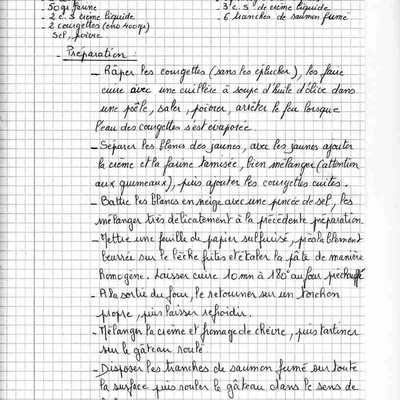 - 50 gr farine
- 3 c. s. de crème liquide
- 2 c. s crème liquide
- 6 tranches de saumon fumé
2 courgettes
Sel, poivre
- Préparation :
- Râper les courgettes (sans les éplucher), les faire
cuire avec une cuillère à soupe d'huile d'olive dans
une poêle, saler, poivrer, arrêter le feu lorsque
l'eau des courgettes s'est évaporée.
- Séparer les blancs des jaunes, avec les jaunes ajouter
la crème et la farine tamisée, bien mélanger (attention
aux grumeaux), puis ajouter les courgettes cuites.
- Battre les blancs en neige avec une pincée de sel, les
mélanger très délicatement à la précédente préparation
- Mettre une feuille de papier sulfurisé, préalablement
beurrée sur le lèche frites et étaler la pâte de manière
homogène. Laisser cuire 10 mn à 180° au four préchauffé
- A la sortie du four, le retourner sur un torchon
propre, puis laisser refroidir.
- Mélanger la crème et fromage de chèvre, puis tartiner
sur le gâteau roulé.
- Disposer les tranches de saumon fumé sur toute
la surface puis rouler le gâteau dans le sens de